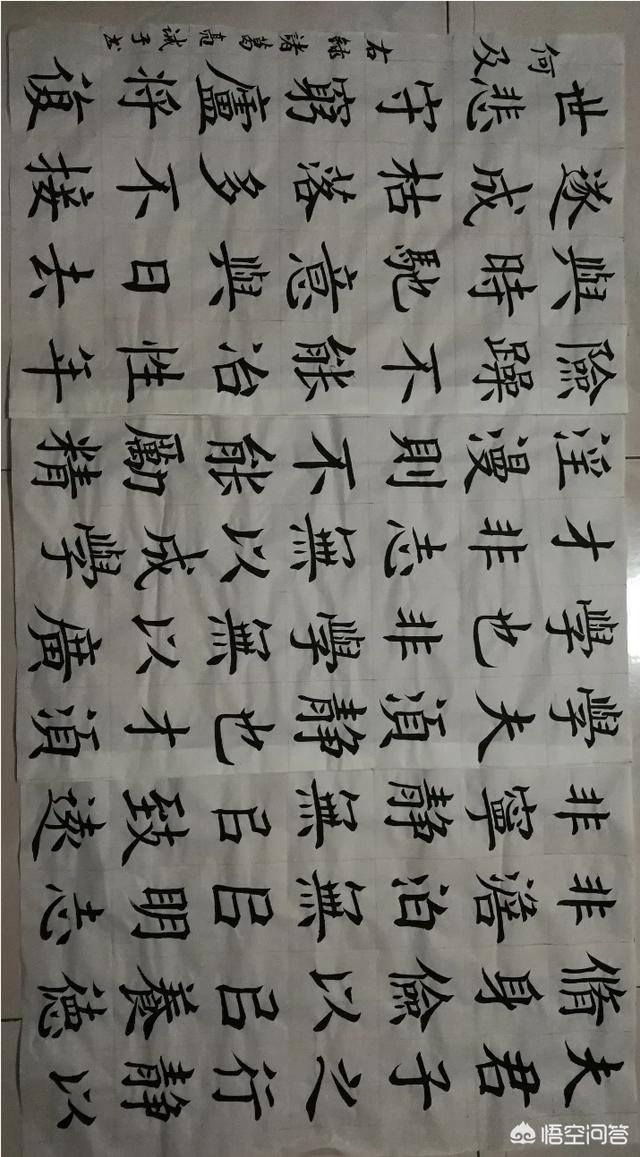 夫君子之行静以
脩身儉以吕養德
非澹泊無吕明志
非寧静無吕致遠
夫學須静也才須
學也非學無以廣
才非志無以成學
淫漫則不能勵精
險躁不能治性年
與時馳意與日去
遂成枯落多不接
世悲守窮廬将復
何及
右録諸葛亮诫子书
悟空问答